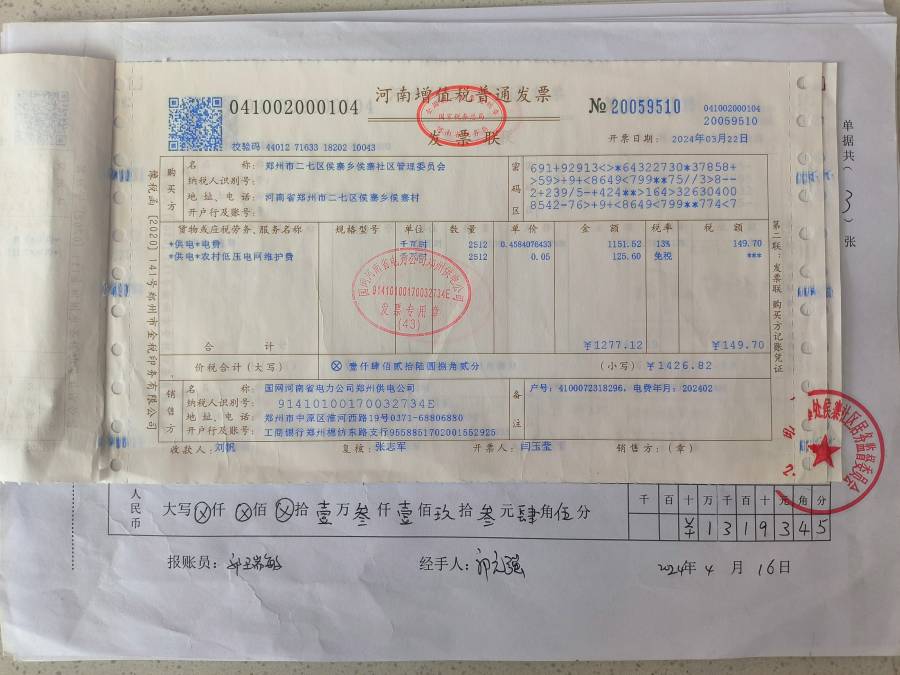 041002000104
河南增值税普通发票
№ 20059510
041002000104
20059510
国家税务总局
发票联
校验码 44012 71633 18202 10043
开票日期: 2024年03月22日
购买方
名 称: 郑州市二七区侯寨乡侯寨社区管理委员会
纳税人识别号:
地 址、电 话: 河南省郑州市二七区侯寨乡侯寨村
开户行及账号:
密码区
691+92913<>*64322730*37858+
>59>+9+<8649<799**75//3>8--
2+239/5-+424**>164>32630400
8542-76>+9+<8649<799**774<7
货物或应税劳务、服务名称 规格型号 单位 数 量 单 价 金 额 税率 税 额
*供电*电费 千瓦时 2512 0.4584076433 1151.52 13% 149.70
*供电*农村低压电网维护费 千瓦时 2512 0.05 125.60 免税 ***
国网河南省电力公司郑州供电公司
91410100170032734E
发票专用章
(43)
合 计 ¥1277.12 ¥149.70
价税合计(大写) ⊗壹仟肆佰贰拾陆圆捌角贰分 (小写) ¥1426.82
销售方
名 称: 国网河南省电力公司郑州供电公司
纳税人识别号: 91410100170032734E
地 址、电 话: 郑州市中原区淮河西路19号0371-68806880
开户行及账号: 工商银行郑州棉纺东路支行9558851702001552925
备注
户号: 4100072318296, 电费年月: 202402
收款人: 刘帆 复核: 张志军 开票人: 闫玉莹 销售方: (章)
豫税函〔2020〕141号郑州市金税印务有限公司
第二联:发票联 购买方记账凭证
单据共 3 张
人民币
大写⊗仟⊗佰⊗拾壹万叁仟壹佰玖拾叁元肆角伍分
千 百 十 万 千 百 十 元 角 分
¥ 1 3 1 9 3 4 5
报账员:
经手人:
2024年 4 月 16日